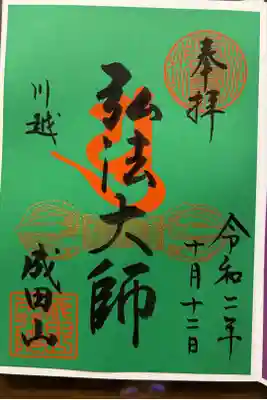 奉拝
令和二年
十月十二日
弘法大師
川越
成田山